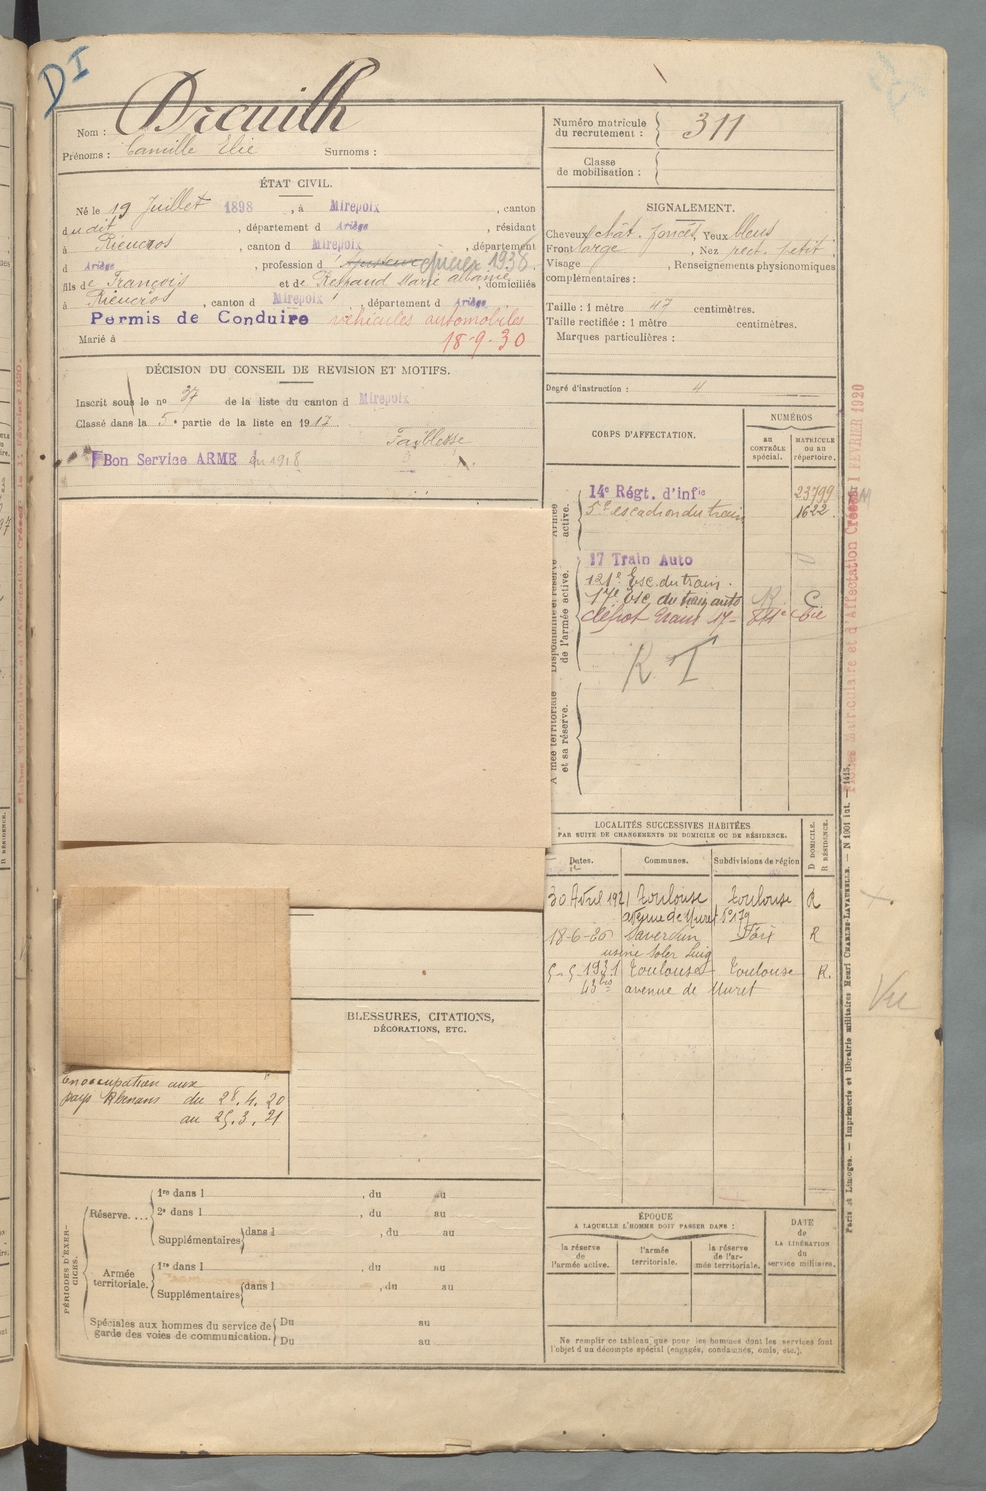 DI
Nom : Dreuilh
Prénoms : Camille Elie Surnoms :
ÉTAT CIVIL.
Né le 19 Juillet 1898, à Mirepoix, canton
dudit, département d Ariège, résidant
à Rieucros, canton d Mirepoix, département
d Ariège, profession d 1938
fils de François et de Marie, domiciliés
à Rieucros, canton d Mirepoix, département d Ariège
Permis de Conduire véhicules automobiles
Marié à 18-9-30
DÉCISION DU CONSEIL DE REVISION ET MOTIFS.
Inscrit sous le no 37 de la liste du canton d Mirepoix
Classé dans la 5e partie de la liste en 1917. Faiblesse
Bon Service ARMÉ en 1918
Numéro matricule du recrutement : 311
Classe de mobilisation :
SIGNALEMENT.
Cheveux chât. foncés, Yeux bleus
Front large, Nez rect. petit,
Visage , Renseignements physionomiques
complémentaires :
Taille : 1 mètre 47 centimètres.
Taille rectifiée : 1 mètre centimètres.
Marques particulières :
Degré d'instruction : 4
CORPS D'AFFECTATION.
NUMÉROS
AU CONTRÔLE spécial.
MATRICULE OU AU répertoire.
Armée active.
14e Régt. d'infie 23799
5e escadron du train 1622
Disponibilité et réserve de l'armée active.
17 Train Auto
121e Esc. du train.
17e Esc. du train auto R C
dépôt 17
R T
Armée territoriale et sa réserve.
LOCALITÉS SUCCESSIVES HABITÉES
PAR SUITE DE CHANGEMENTS DE DOMICILE OU DE RÉSIDENCE.
Dates. Communes. Subdivisions de région D DOMICILE. R RÉSIDENCE.
30 Avril 1921 Toulouse Toulouse R
avenue de Muret No 179
18-6-26 Saverdun Foix R
usine
5-5-1931 Toulouse Toulouse R.
43 bis avenue de Muret
BLESSURES, CITATIONS,
DÉCORATIONS, ETC.
En occupation aux
pays Rhénans du 28.4.20
au 25.3.21
PÉRIODES D'EXERCICES.
Réserve....
1re dans l , du au
2e dans l , du au
Supplémentaires dans l , du au
Armée territoriale.
1re dans l , du au
Supplémentaires dans l , du au
Spéciales aux hommes du service de garde des voies de communication.
Du au
Du au
ÉPOQUE
A LAQUELLE L'HOMME DOIT PASSER DANS :
la réserve de l'armée active.
l'armée territoriale.
la réserve de l'armée territoriale.
DATE de LA LIBÉRATION du service militaire.
Ne remplir ce tableau que pour les hommes dont les services font
l'objet d'un décompte spécial (engagés, condamnés, omis, etc.).
Fiches Matriculaire et d'Affectation Créées 1 FEVRIER 1920
Paris et Limoges. — Imprimerie et librairie militaires Henri CHARLES-LAVAUZELLE. — N 1001 int. — 1415.
Vu